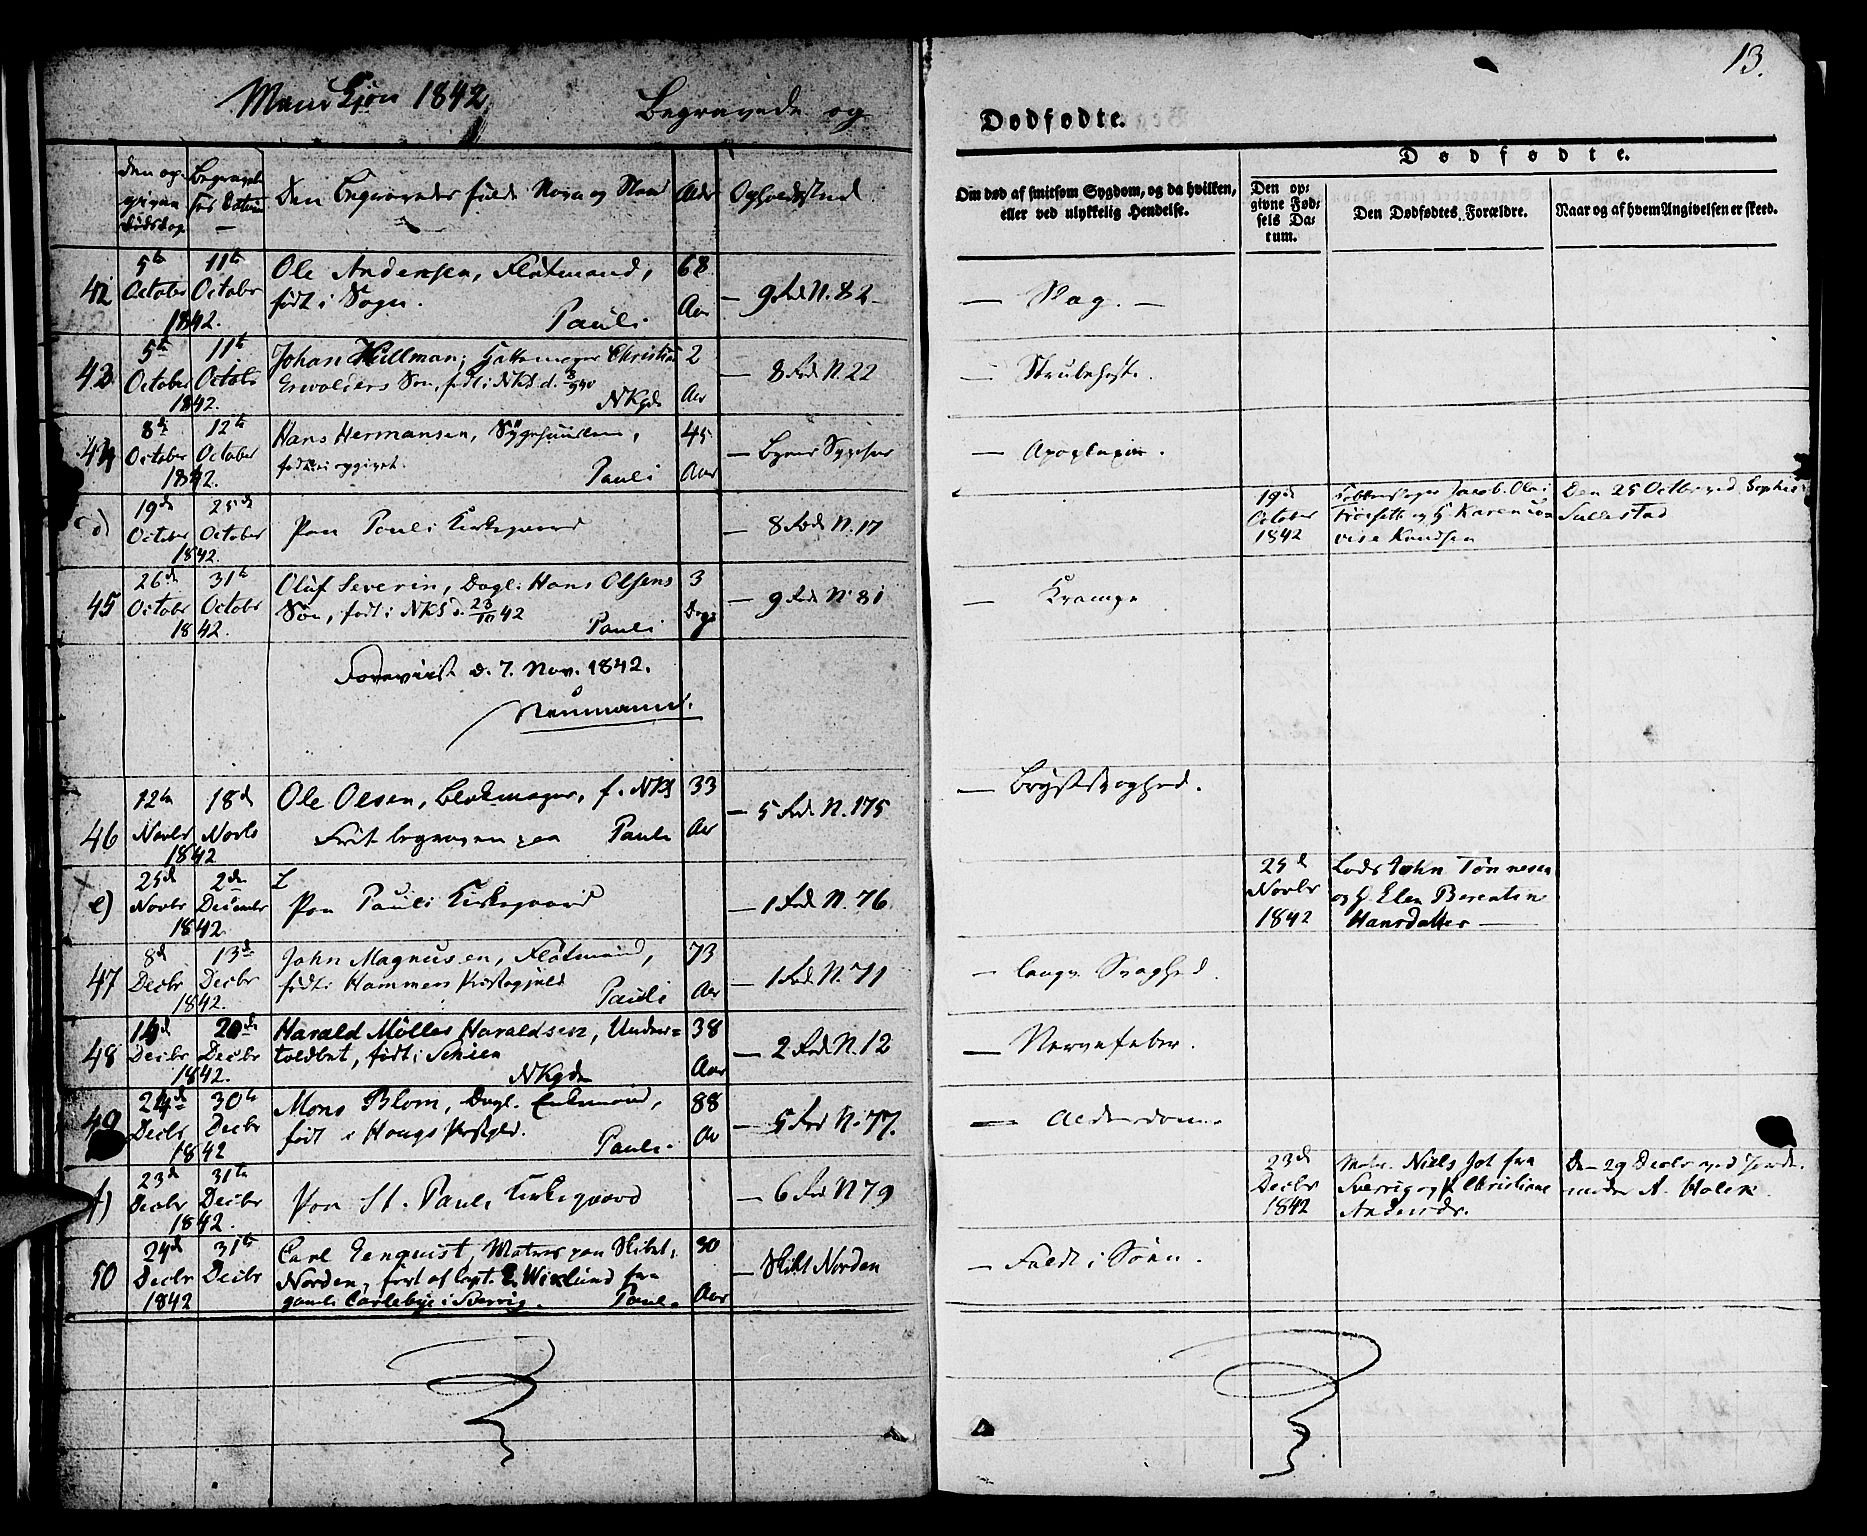 13.
Mandkjøn 1842
Begravede og
Dødfødte.
Dødfødte.
Den Begravedes fulde Navn og Stand
Alder
Opholdssted
Om død af smitsom Sygdom, og da hvilken,
eller ved ulykkelig Hendelse.
Den op=
givne Fød=
sels Da=
tum.
Den Dødfødtes Forældre.
Naar og af hvem Angivelsen er skeed.
42
5te October 1842.
11te October
Ole Andersen, Flötmand,
født i Sogn.
Pauli
68 Aar
— 9 Rode N. 82 —
— Slag. —
43
5te October 1842.
11te October
Johan Hullman, Hattemager Christian
Erwolders Søn, født i NKS d.
NKgd
2 Aar
— 8 Rode N. 22
— Strubehoste.
44
8de October 1842.
12te October
Hans Hermansen, Sygehuuslem,
Pauli
45 Aar
— Byens Sygehus
— Apoplexie.
d)
19de October 1842.
25de October
Paa Pauli Kirkegaard
— 8 Rode N. 17
19de October 1842
Jacob Olai
og H. Karen Lo=
vise Knudsen
Den 25 Octbr ved Sophie
Sællestad
45
26de Octobr 1842.
31te Octobr
Oluf Severin, Dagl. Hans Olsens
Søn, født i NKS d. 23/10 42
Pauli
3 Dage
— 9 Rode N. 81
— Krampe
Forevist d. 7. Nov. 1842.
Neumann.
46
12te Novbr 1842
18de Novbr
Ole Olsen, Blokmager, f. NKS
Frit begraven paa Pauli
33 Aar
— 5 Rode N. 175
— Brystsvaghed.
e)
25de Novbr 1842.
2den Decembr
Paa Pauli Kirkegaard
— 1 Rode N. 76
25de Novbr 1842
Lods John Tønnesen
og H. Elen Berentine
Hansdatter —
47
8de Decbr 1842.
13de Decbr
John Magnusen, Flötmand,
født i Hammers Præstegjeld
Pauli
73 Aar
— 1 Rode N. 71
— lang Svaghed.
48
14de Decbr 1842.
20de Decbr
Harald Møller Haraldsen, Under=
toldbet, født i Schien
NKgde
38 Aar
— 2 Rode N. 12
— Nervefeber.
49
24de Decbr 1842
30te Decbr
Mons Blom, Dagl. Enkemand,
født i Hougs Præstgld.
Pauli.
88 Aar
— 5 Rod N. 77.
— Alderdom.
f)
23de Decbr 1842.
31te Decbr
Paa St. Pauli Kirkegaard
— 6 Rode N 79
23de Decbr 1842
Matr. Niels fra
Sverrig og P. Christiane
Andersdr.
D. 29 Decbr ved Jorde=
moder A. Holck.
50
24de Decbr 1842
31te Decbr
Carl Enquist, Matros paa Skibet
Norden, ført af Capt. Wixlund fra
gamle Carlebye i Sverrig.
Pauli.
30 Aar
— Skibet Norden
— Faldt i Søen.